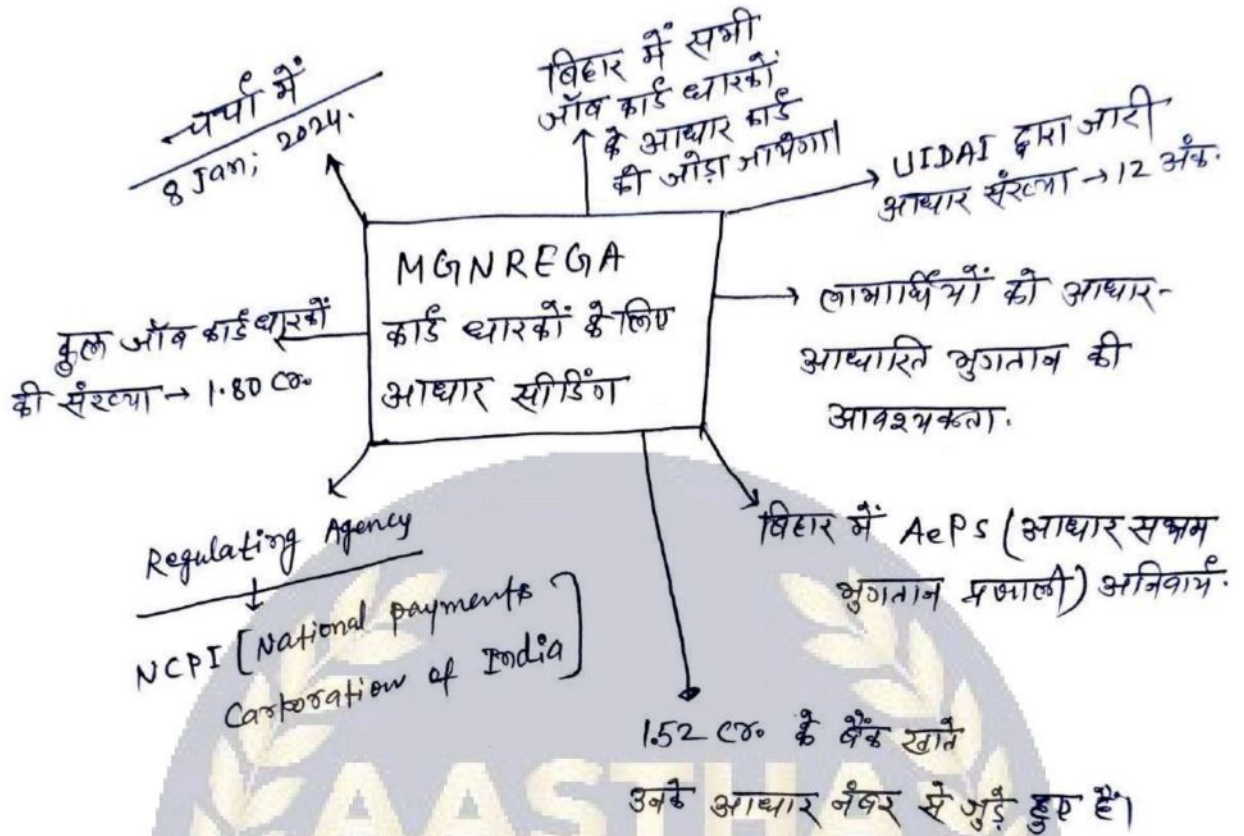 चर्चा में
8 Jan; 2024.
बिहार में सभी
जॉब कार्ड धारकों
के आधार कार्ड
को जोड़ा जायेगा।
UIDAI द्वारा जारी
आधार संख्या → 12 अंक.
MGNREGA
कार्ड धारकों के लिए
आधार सीडिंग
लाभार्थियों को आधार-
आधारित भुगतान की
आवश्यकता.
कुल जॉब कार्ड धारकों
की संख्या → 1.80 Cr.
Regulating Agency
NCPI [National payments
Corporation of India]
बिहार में AePS (आधार सक्षम
भुगतान प्रणाली) अनिवार्य.
1.52 Cr. के बैंक खाते
उनके आधार नंबर से जुड़े हुए हैं।
AASTHA